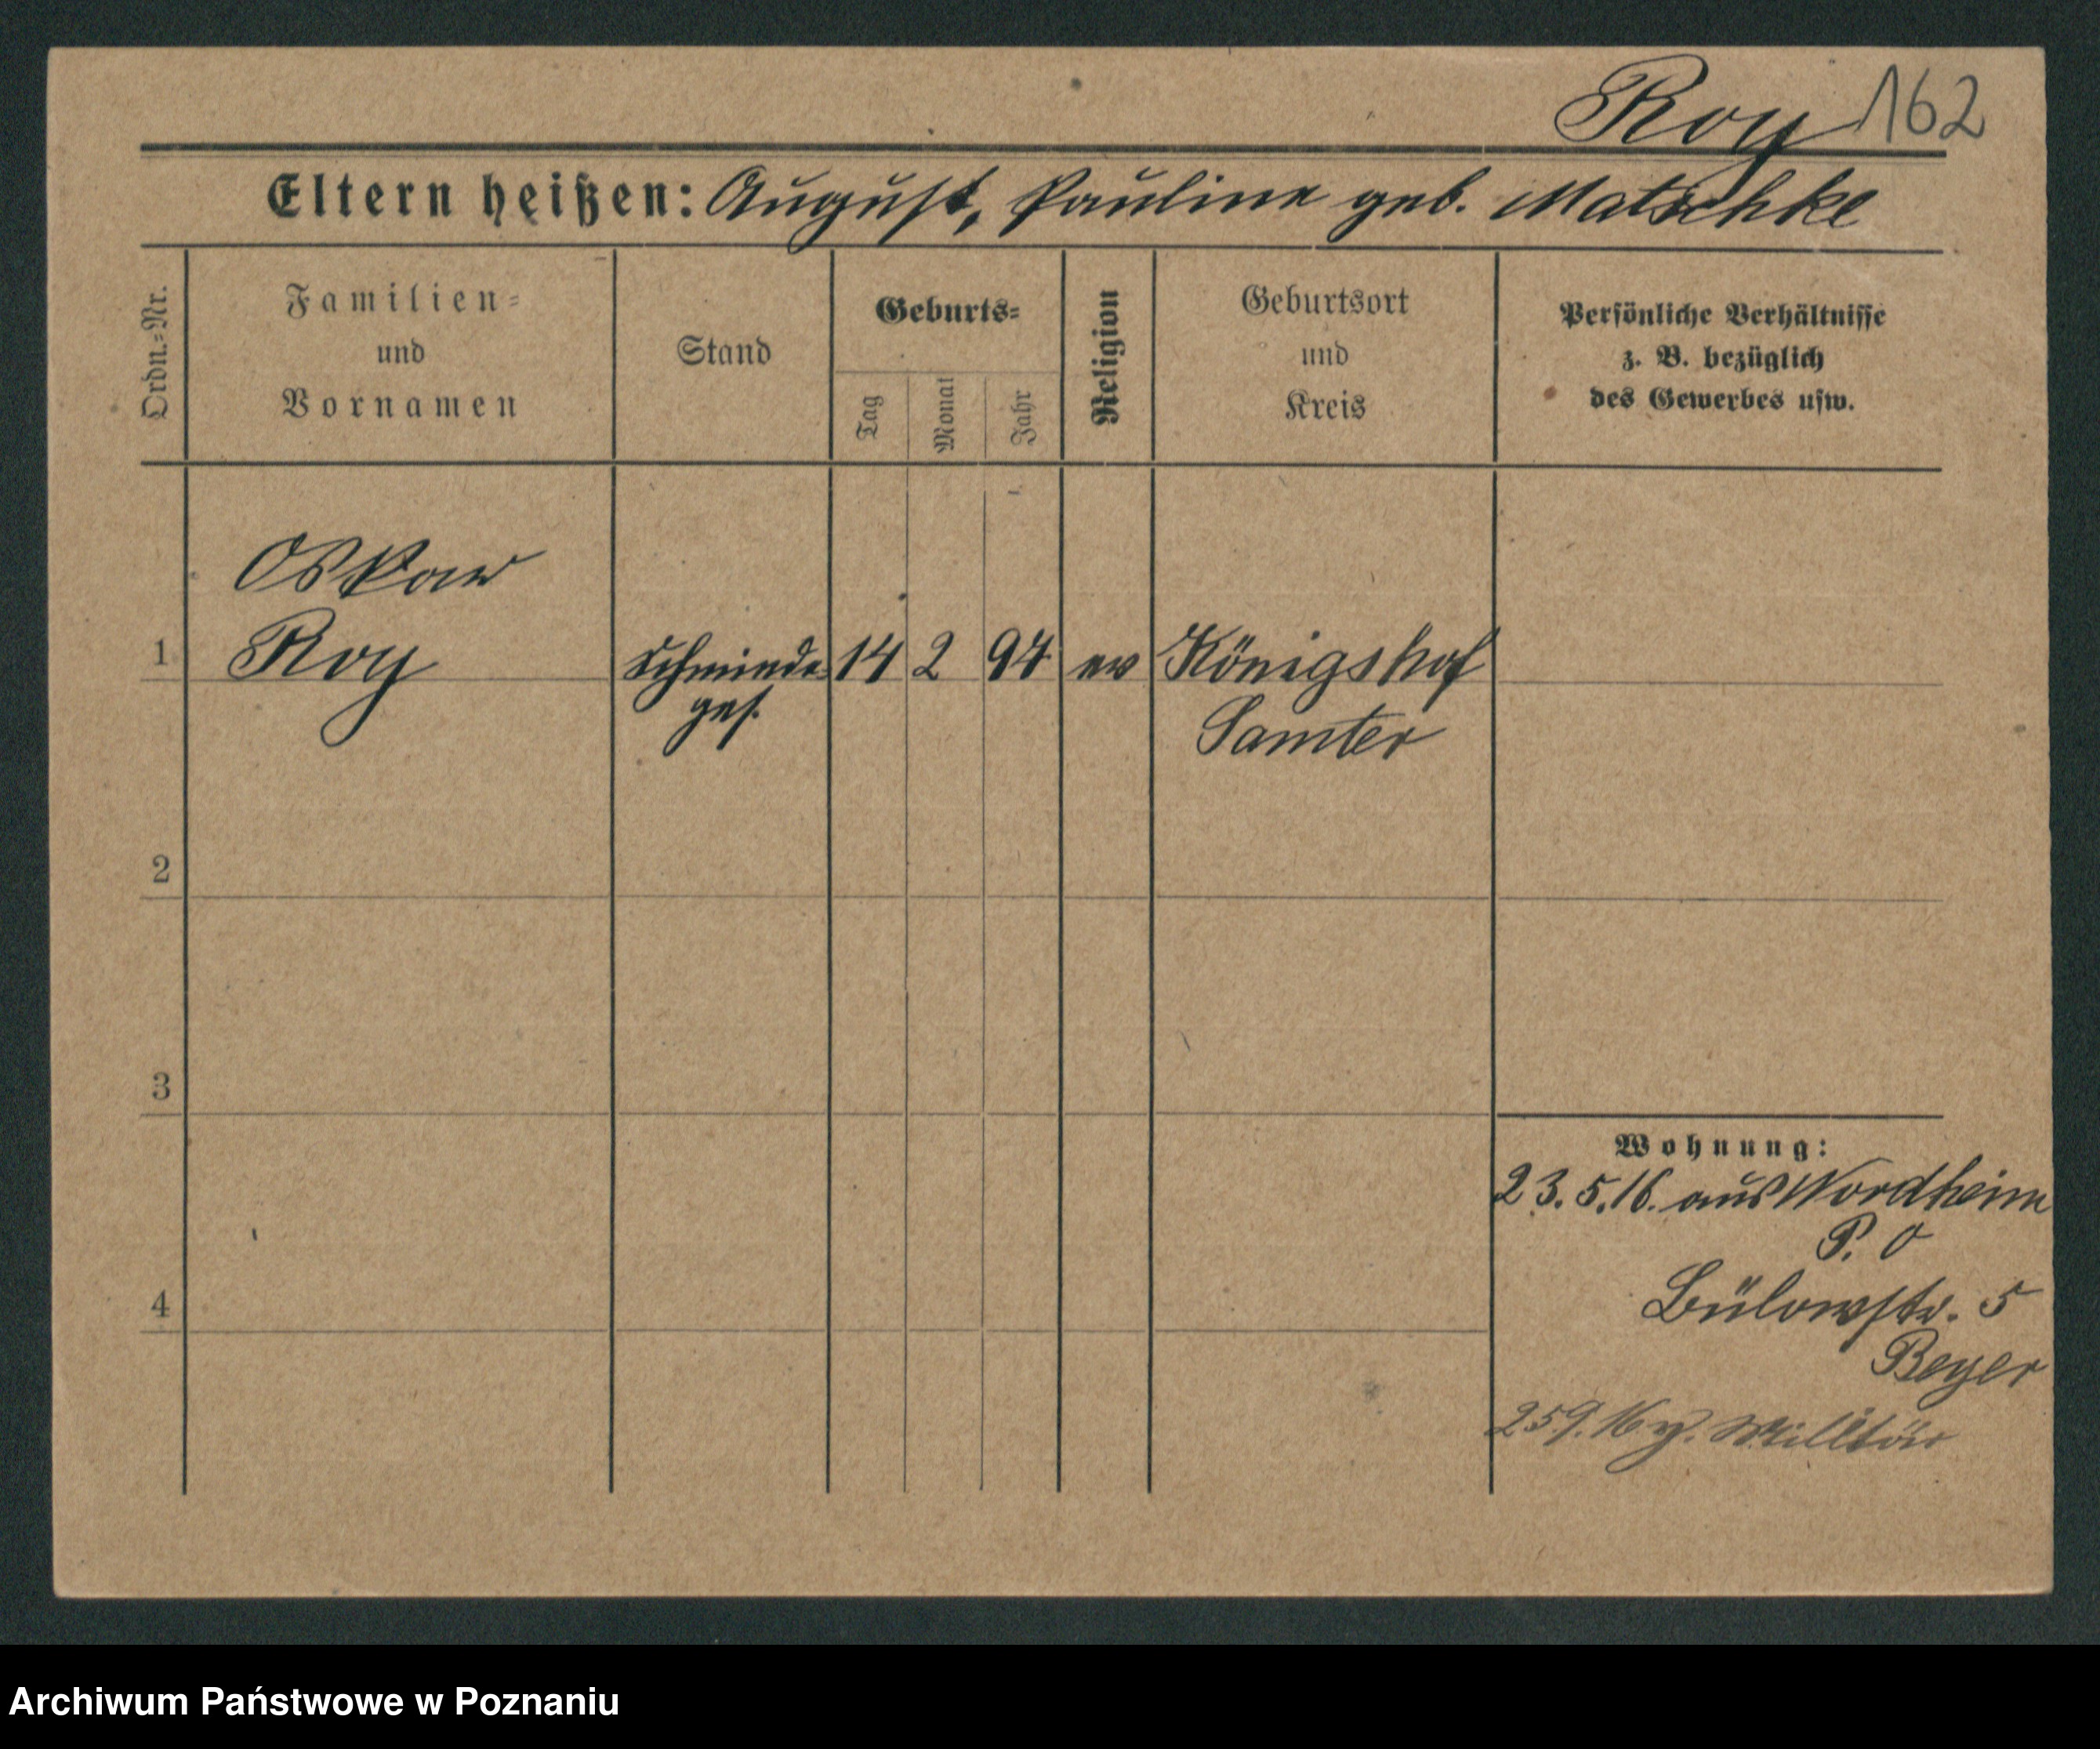 Roy 162
Eltern heißen: August, Pauline geb. Matschke
Ordn.=Nr.
Familien=
und
Vornamen
Stand
Geburts=
Tag
Monat
Jahr
Religion
Geburtsort
und
Kreis
Persönliche Verhältnisse
z. B. bezüglich
des Gewerbes usw.
Oskar
1 Roy Schmiede 14 2 94 ev Königshof
ges. Samter
2
3
4
Wohnung:
23.5.16. aus Nordheim
P. O
Bülowstr. 5
Beyer
25.9.16 z. Militär
Archiwum Państwowe w Poznaniu